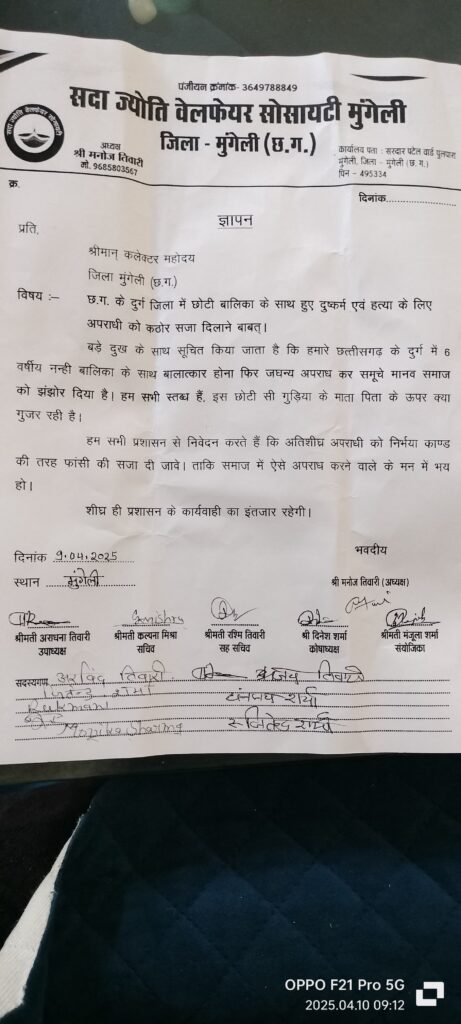 पंजीयन क्रमांक- 3649788849
सदा ज्योति वेलफेयर सोसायटी मुंगेली
जिला - मुंगेली (छ.ग.)
अध्यक्ष
श्री मनोज तिवारी
मो. 9685803567
कार्यालय पता : सरदार पटेल वार्ड पुलपारा
मुंगेली, जिला - मुंगेली (छ. ग.)
पिन - 495334
क्र.
दिनांक
ज्ञापन
प्रति,
श्रीमान् कलेक्टर महोदय
जिला मुंगेली (छ.ग.)
विषय :– छ.ग. के दुर्ग जिला में छोटी बालिका के साथ हुए दुष्कर्म एवं हत्या के लिए
अपराधी को कठोर सजा दिलाने बाबत्।
बड़े दुख के साथ सूचित किया जाता है कि हमारे छत्तीसगढ़ के दुर्ग में 6
वर्षीय नन्ही बालिका के साथ बालात्कार होना फिर जघन्य अपराध कर समूचे मानव समाज
को झंझोर दिया है। हम सभी स्तब्ध हैं, इस छोटी सी गुड़िया के माता पिता के ऊपर क्या
गुजर रही है।
हम सभी प्रशासन से निवेदन करते हैं कि अतिशीघ्र अपराधी को निर्भया काण्ड
की तरह फांसी की सजा दी जावे। ताकि समाज में ऐसे अपराध करने वाले के मन में भय
हो।
शीघ्र ही प्रशासन के कार्यवाही का इंतजार रहेगी।
भवदीय
दिनांक 9.04.2025
स्थान मुंगेली
श्री मनोज तिवारी (अध्यक्ष)
श्रीमती अराधना तिवारी श्रीमती कल्पना मिश्रा श्रीमती रश्मि तिवारी श्री दिनेश शर्मा श्रीमती मंजूला शर्मा
उपाध्यक्ष सचिव सह सचिव कोषाध्यक्ष संयोजिका
सदस्यगण अरविंद तिवारी
शर्मा
Rukmani
Monika Sharma
OPPO F21 Pro 5G
2025.04.10 09:12